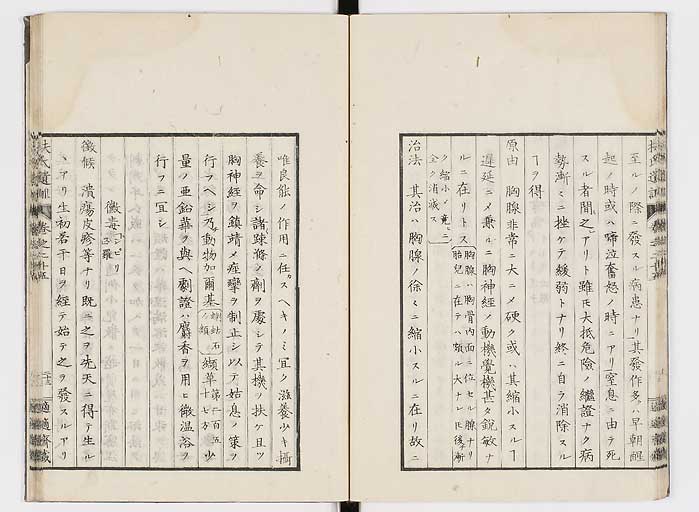 至ルノ際ニ發スル病患ナリ其發作多クハ早朝醒
起ノ時或ハ啼泣奮怒ノ時ニアリ窒息ニ由テ死
スル者間之アリト雖モ大抵危險ノ繼證ナク病
勢漸ニ挫ケテ緩弱トナリ終ニ自ラ消除スル
ヿヲ得
原由　胸腺非常ニ大ニメ硬ク或ハ其縮小スルヿ
遲延ニメ兼ルニ胸神経ノ動機覺機甚タ鋭敏ナ
ルニ在リトス胸腺ハ胸骨内面ニ位セル腺ナリ
胎兒ニ在テハ頗ル大ナレ𪜈後漸
ク縮小メ竟ニ
全ク消滅ス
治法　其治ハ胸腺ノ徐々ニ縮小スルニ在リ故ニ
唯良能ノ作用ニ任スヘキノミ宜ク滋養少キ攝
養ヲ命シ諸踈滌ノ劑ヲ處シテ其機ヲ扶ケ且ツ
胸神経ヲ鎮靖メ痙攣ヲ制止シ以テ姑息ノ策ヲ
行フヘシ乃動物加爾基蝲蛄石
ノ類纈草第千百五
十七方少
量ノ亜鉛華ヲ與ヘ劇證ハ麝香ヲ用ヒ微温浴ヲ
行フニ宜シ
黴毒
徴候　潰瘍皮疹等ナリ既ニ之ヲ先天ニ得テ生ル
ヽアリ生初若干日ヲ経テ始テ之ヲ發スルアリ
扶氏遺訓　卷之
適適齋藏